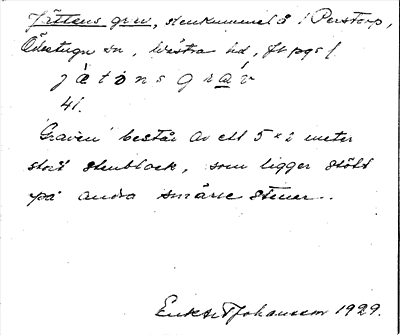 Jättens grav, stenkummel i Perstorp,
Ödestugu sn, Västra hd, Jkpgs l
j ä t ò n s g r a v
41.
'Graven' består av ett 5 x 2 meter
stort stenblock, som ligger stött
på andra smärre stenar.
Johansson 1929.